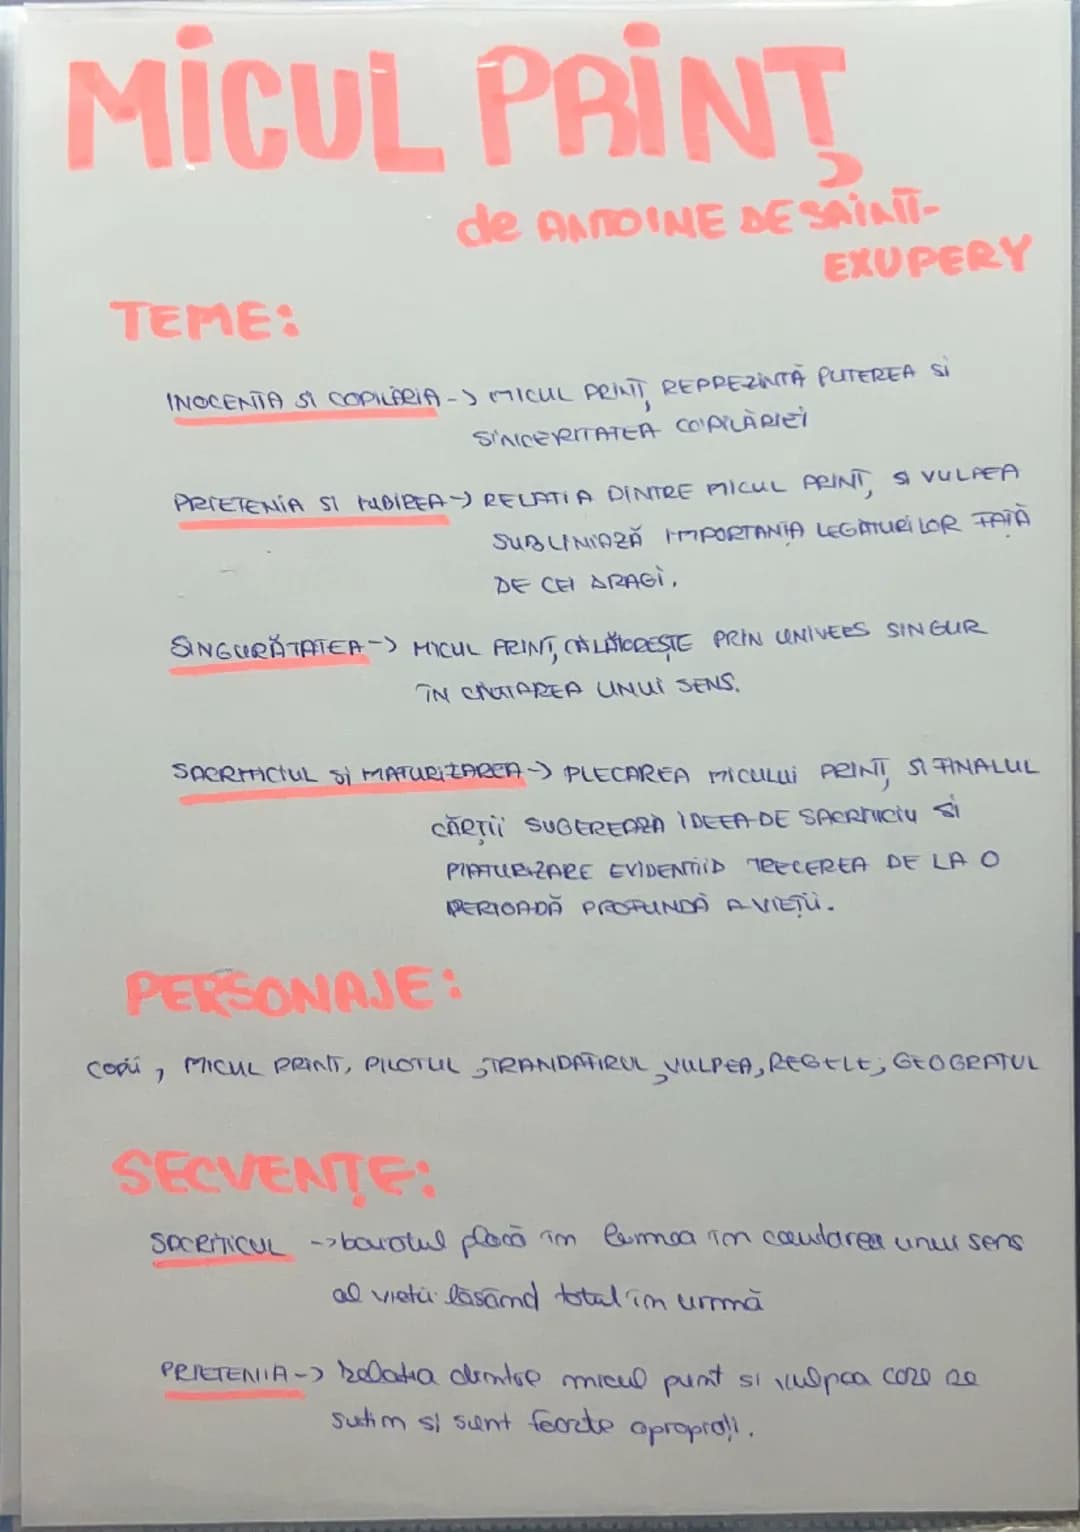 MICUL PRINȚ
de ANTOINE DE SAINT-
EXUPERY
TEME:
INOCENTA SI COPILĂRIA -> MICUL PRINȚ REPREZINTĂ PUTEREA SI
SINCERITATEA COPILĂRIEI
PRIETENIA SI IUBIREA -> RELATIA DINTRE MICUL PRINȚ SI VULPEA
SUBLINIAZĂ IMPORTANȚA LEGĂTURILOR FAȚĂ
DE CEI DRAGI.
SINGURĂTATEA -> MICUL PRINȚ CĂLĂTOREȘTE PRIN UNIVERS SINGUR
ÎN CĂUTAREA UNUI SENS.
SACRIFICIUL SI MATURIZAREA -> PLECAREA MICULUI PRINȚ SI FINALUL
CĂRȚII SUGEREAZĂ IDEEA DE SACRIFICIU SI
MATURIZARE EVIDENTIID TRECEREA DE LA O
PERIOADĂ PROFUNDĂ A VIEȚII.
PERSONAJE:
Copii, MICUL PRINT, PILOTUL, TRANDAFIRUL, VULPEA, REGELE, GEOGRAFUL
SECVENȚE:
SACRIFICUL -> baiatul placă in lumea in cautarea unui sens
al vietii lăsând totul in urmă
PRIETENIA -> Relatia dintre micul print si vulpea care se
sutim si sunt foarte apropiați.